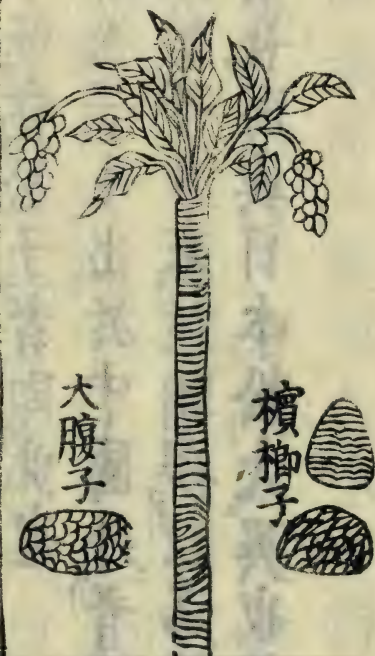 檳榔子
大腹子